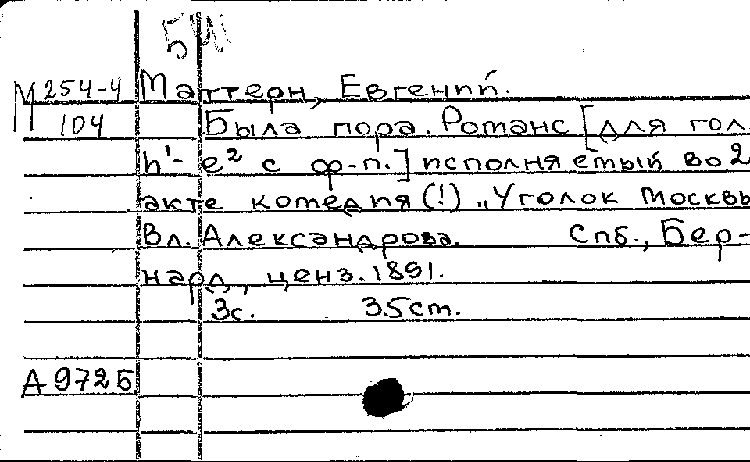 М 254-4 Маттерн, Евгений.
104 Была пора. Романс [для гол
h¹- e² с ф-п.] исполняемый во 2
акте комедия (!) „Уголок Москвы
Вл. Александрова. Спб., Бер-
нард, ценз. 1891.
3с. 35см.
А 9725